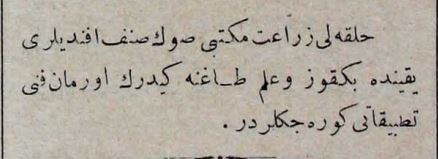 حلقه لی زراعت مكتبی صوك صنف افندیلری
یقینده بكقوز وعلم طاغنه كیدرك اورمان فنی
تطبیقاتی كوره جكلردر .